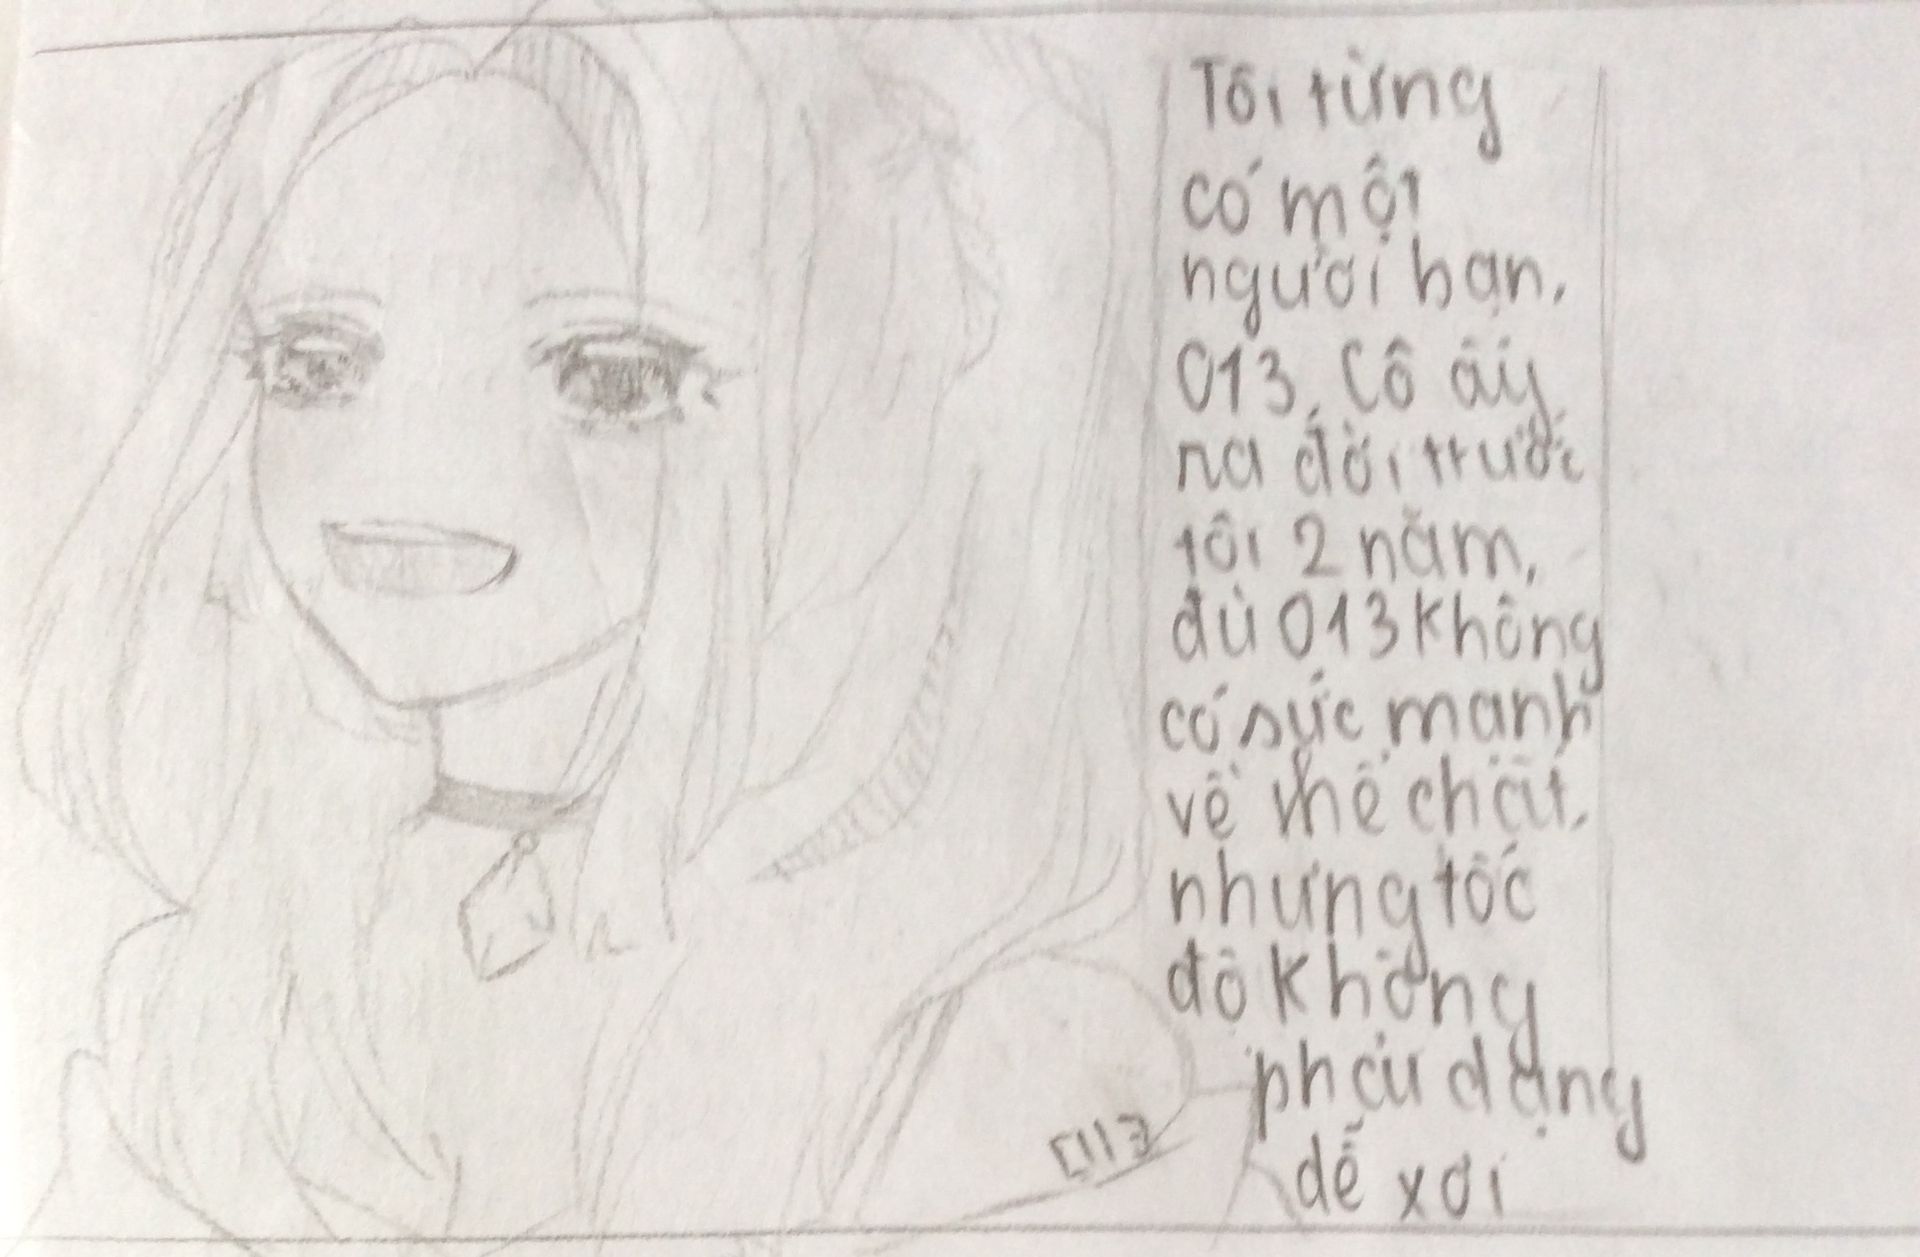 Tôi từng
có một
người bạn,
013. Cô ấy
ra đời trước
tôi 2 năm,
dù 013 không
có sức mạnh
về thể chất,
nhưng tốc
độ không
phải dạng
dễ xơi